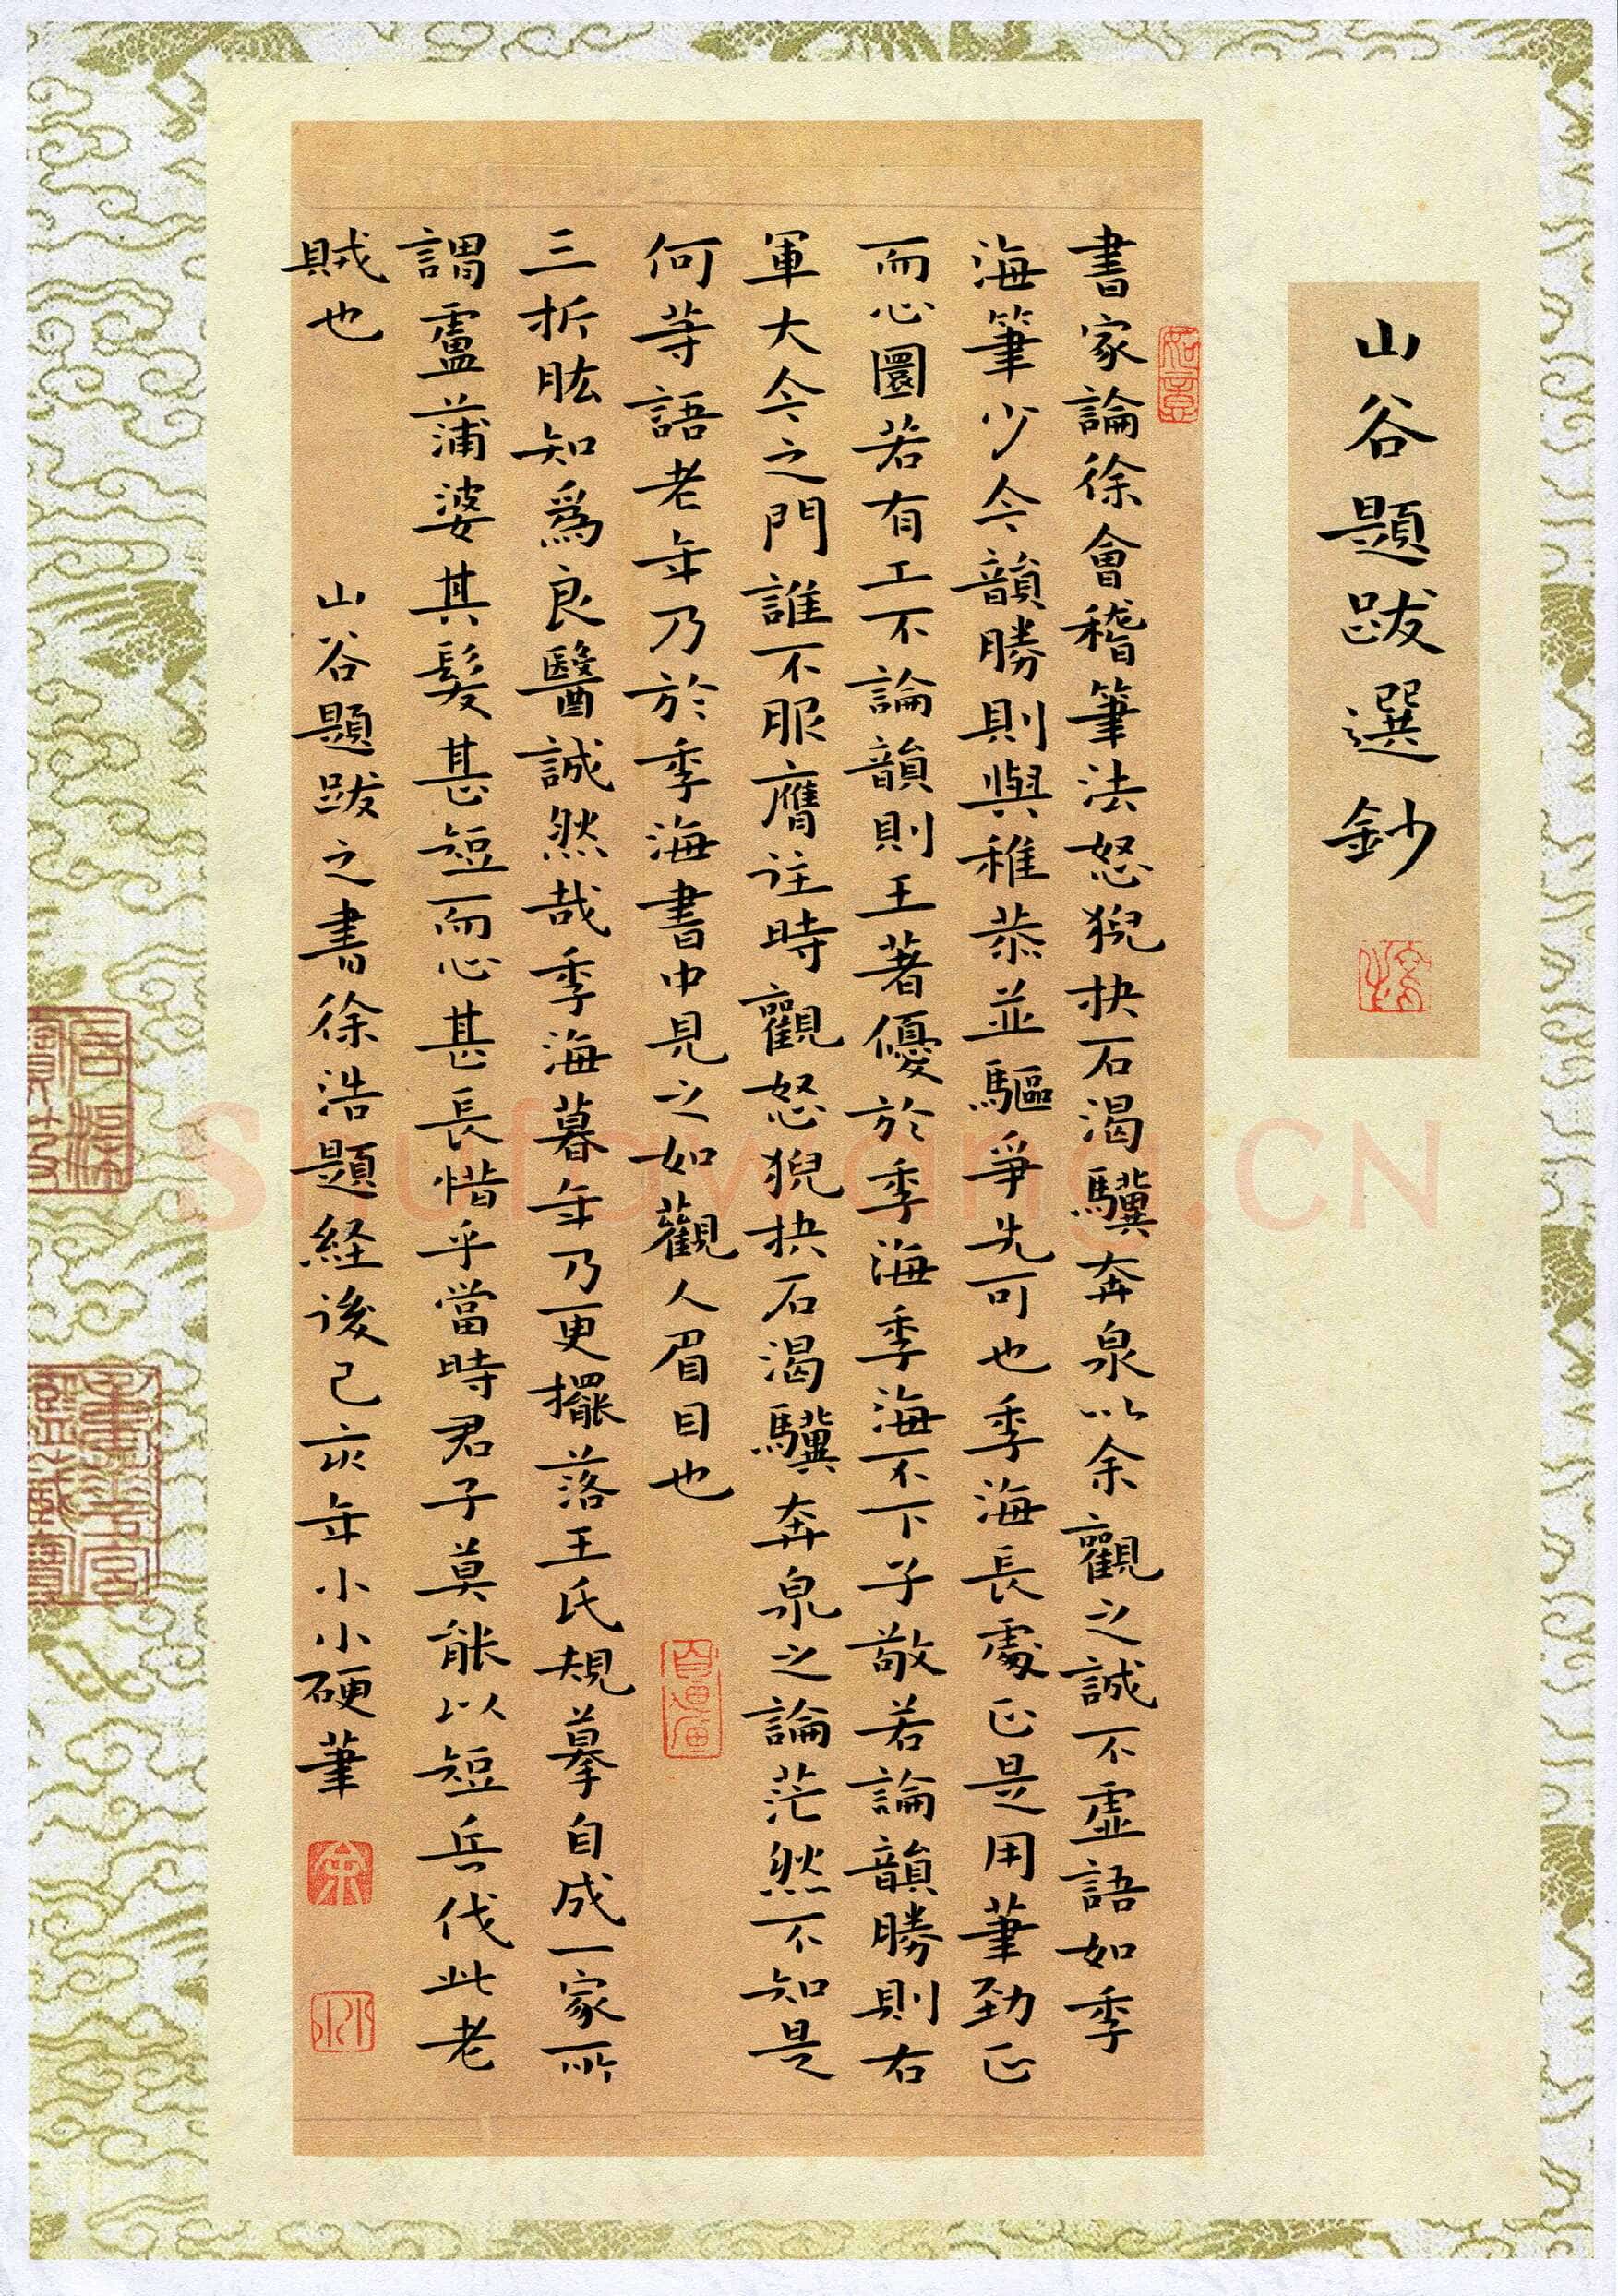 山谷題跋選鈔
書家論徐會稽筆法怒猊抉石渴驥奔泉以余觀之誠不虛語如季
海筆少令韻勝則與稚恭並驅爭先可也季海長處正是用筆勁正
而心圜若有工不論韻則王著優於季海季海不下子敬若論韻勝則右
軍大令之門誰不服膺往時觀怒猊抉石渴驥奔泉之論茫然不知是
何等語老年乃於季海書中見之如觀人眉目也
三折肱知為良醫誠然哉季海暮年乃更擺落王氏規摹自成一家所
謂盧蒲嫳其髮甚短而心甚長惜乎當時君子莫能以短兵伐此老
賊也
山谷題跋之書徐浩題経後己亥年小小硬筆
如意
余
小
shufawang.CN